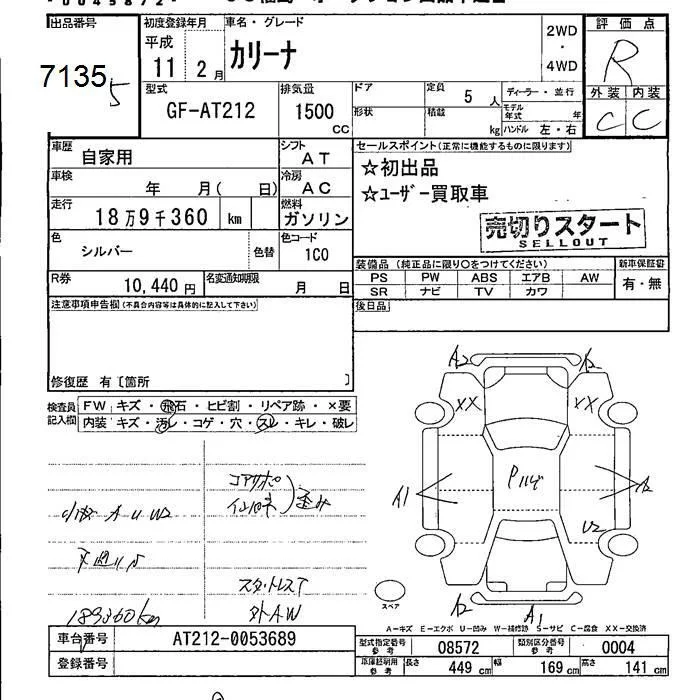 出品番号 初度登録年月 車名・グレード 2WD 評価点
平成 カリーナ ・ R
7135 11 2月 4WD 外装 内装
5 C C
型式 排気量 ドア 定員 5 人 ディーラー・並行
GF-AT212 1500 cc 形状 積載 kg モデル年式 年
ハンドル 左・右
車歴 自家用 シフト AT セールスポイント(正常に機能するものに限ります)
車検 年 月( 日) 冷房 AC ☆初出品
走行 18万9千360 km 燃料 ガソリン ☆ユーザー買取車
売切りスタート
SELLOUT
色 シルバー 色替 色コード 1C0
装備品(純正品に限り○をつけてください) 新車保証書
R券 10,440円 名変通知期限 月 日 PS PW ABS エアB AW 有・無
SR ナビ TV カワ
注意事項申告欄(不具合内容等は具体的に記入して下さい) 後日品
修復歴 有〔箇所 〕
検査員記入欄 FW キズ・飛石・ヒビ割・リペア跡・×要
内装 キズ・汚レ・コゲ・穴・スレ・キレ・破レ
A2 A2
XX XX
コアサポ
歪み
小傷 A U W2 A1 P A2
U2
スタッドレスT
189360km 外AW
スペア A2 A1
A-キズ E-エクボ U-凹み W-補修跡 S-サビ C-腐食 XX-交換済
車台番号 AT212-0053689 型式指定番号 参考 08572 類別区分番号 参考 0004
登録番号 車庫証明用 参考 長さ 449 cm 幅 169 cm 高さ 141 cm